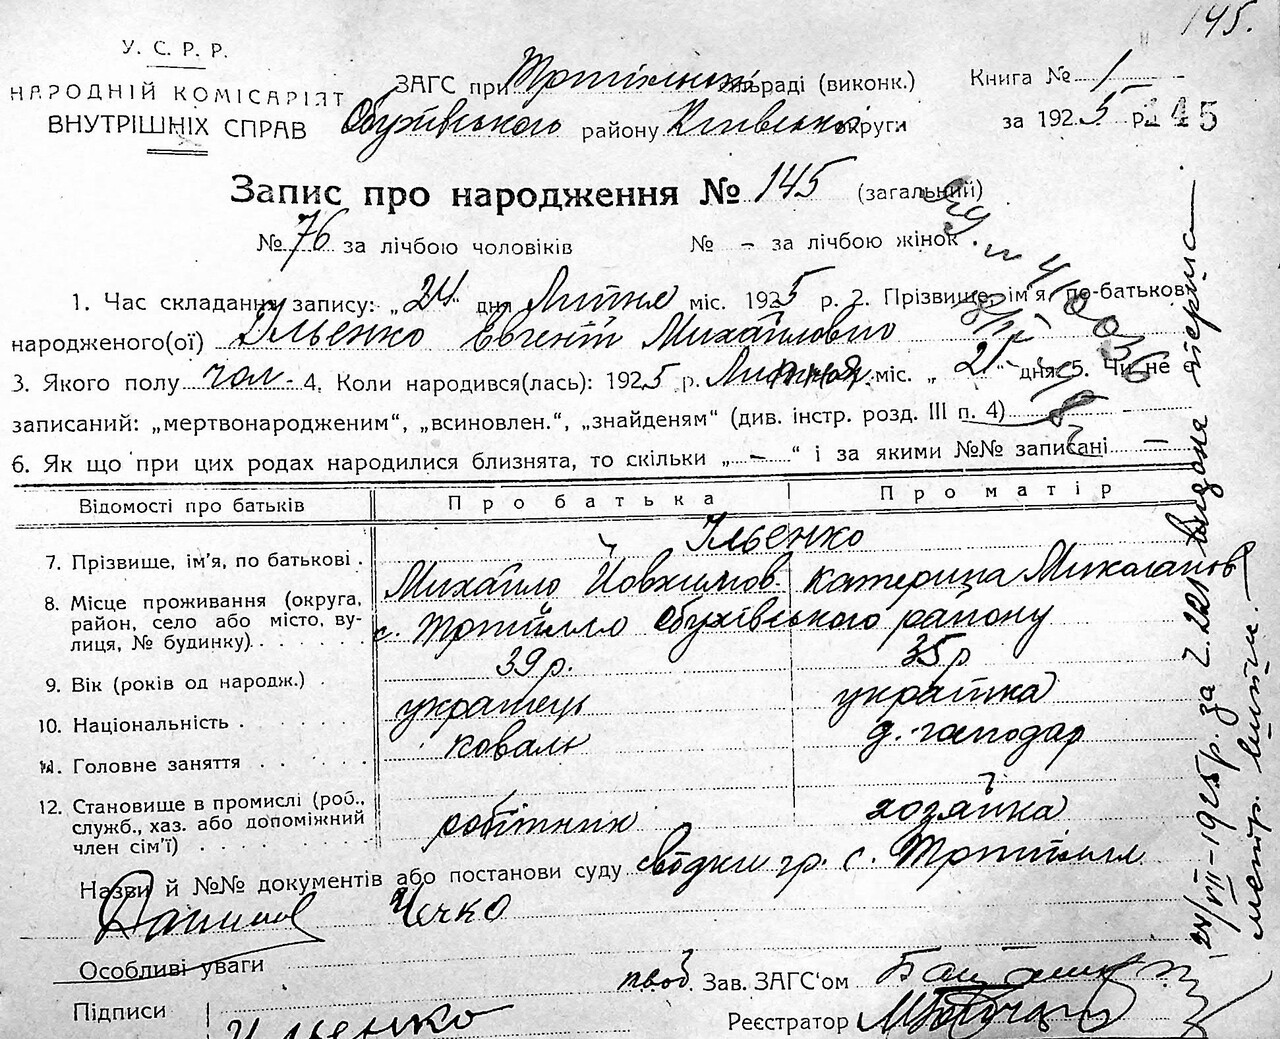 145.
У. С. Р. Р.
НАРОДНІЙ КОМІСАРІЯТ
ВНУТРІШНІХ СПРАВ
ЗАГС при сільраді (виконк.)
Обухівського району Київської округи
Книга № 1
за 1925 р. 145
Запис про народження № 145 (загальний)
№ 76 за лічбою чоловіків № – за лічбою жінок
1. Час складання запису: „24“ дня Лютня міс. 1925 р. 2. Прізвище, ім'я, по-батькові
народженого(ої) Ільєнко Євгеній Михайлович
3. Якого полу чол. 4. Коли народився(лась): 1925 р. Лютня міс. „21“ дня. 5. Чи не є
записаний: „мертвонародженим“, „всиновлен.“, „знайденям“ (див. інстр. розд. III п. 4)
6. Як що при цих родах народилися близнята, то скільки „–“ і за якими №№ записані –
Відомості про батьків Про батька Про матір
7. Прізвище, ім'я, по батькові . Ільєнко
Михайло Йовхимов. Катерина Миколаїв
8. Місце проживання (округа, район, село або місто, вулиця, № будинку) с. Трипілля Обухівського району
9. Вік (років од народж.) . 39 р. 35 р
10. Національність . українець українка
11. Головне заняття коваль д. господар
12. Становище в промислі (роб., служб., хаз. або допоміжний член сім'ї) робітник хозяйка
Назви й №№ документів або постанови суду гр. с. Трипілля
Чечко
Особливі уваги
Підписи Ільєнко
Зав. ЗАГС'ом
Реєстратор
24/VII–1925 р. за № 221 видана перша
метр. витяг.